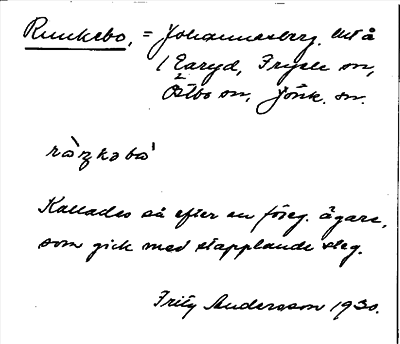 Runkebo, = Johannesberg, lht å
1 Earyd, Fryele sn,
Östbo sn, Jönk. sn.
kəbó
Kallades så efter en föreg. ägare,
som gick med stapplande steg.
Fritz Andersson 1930.